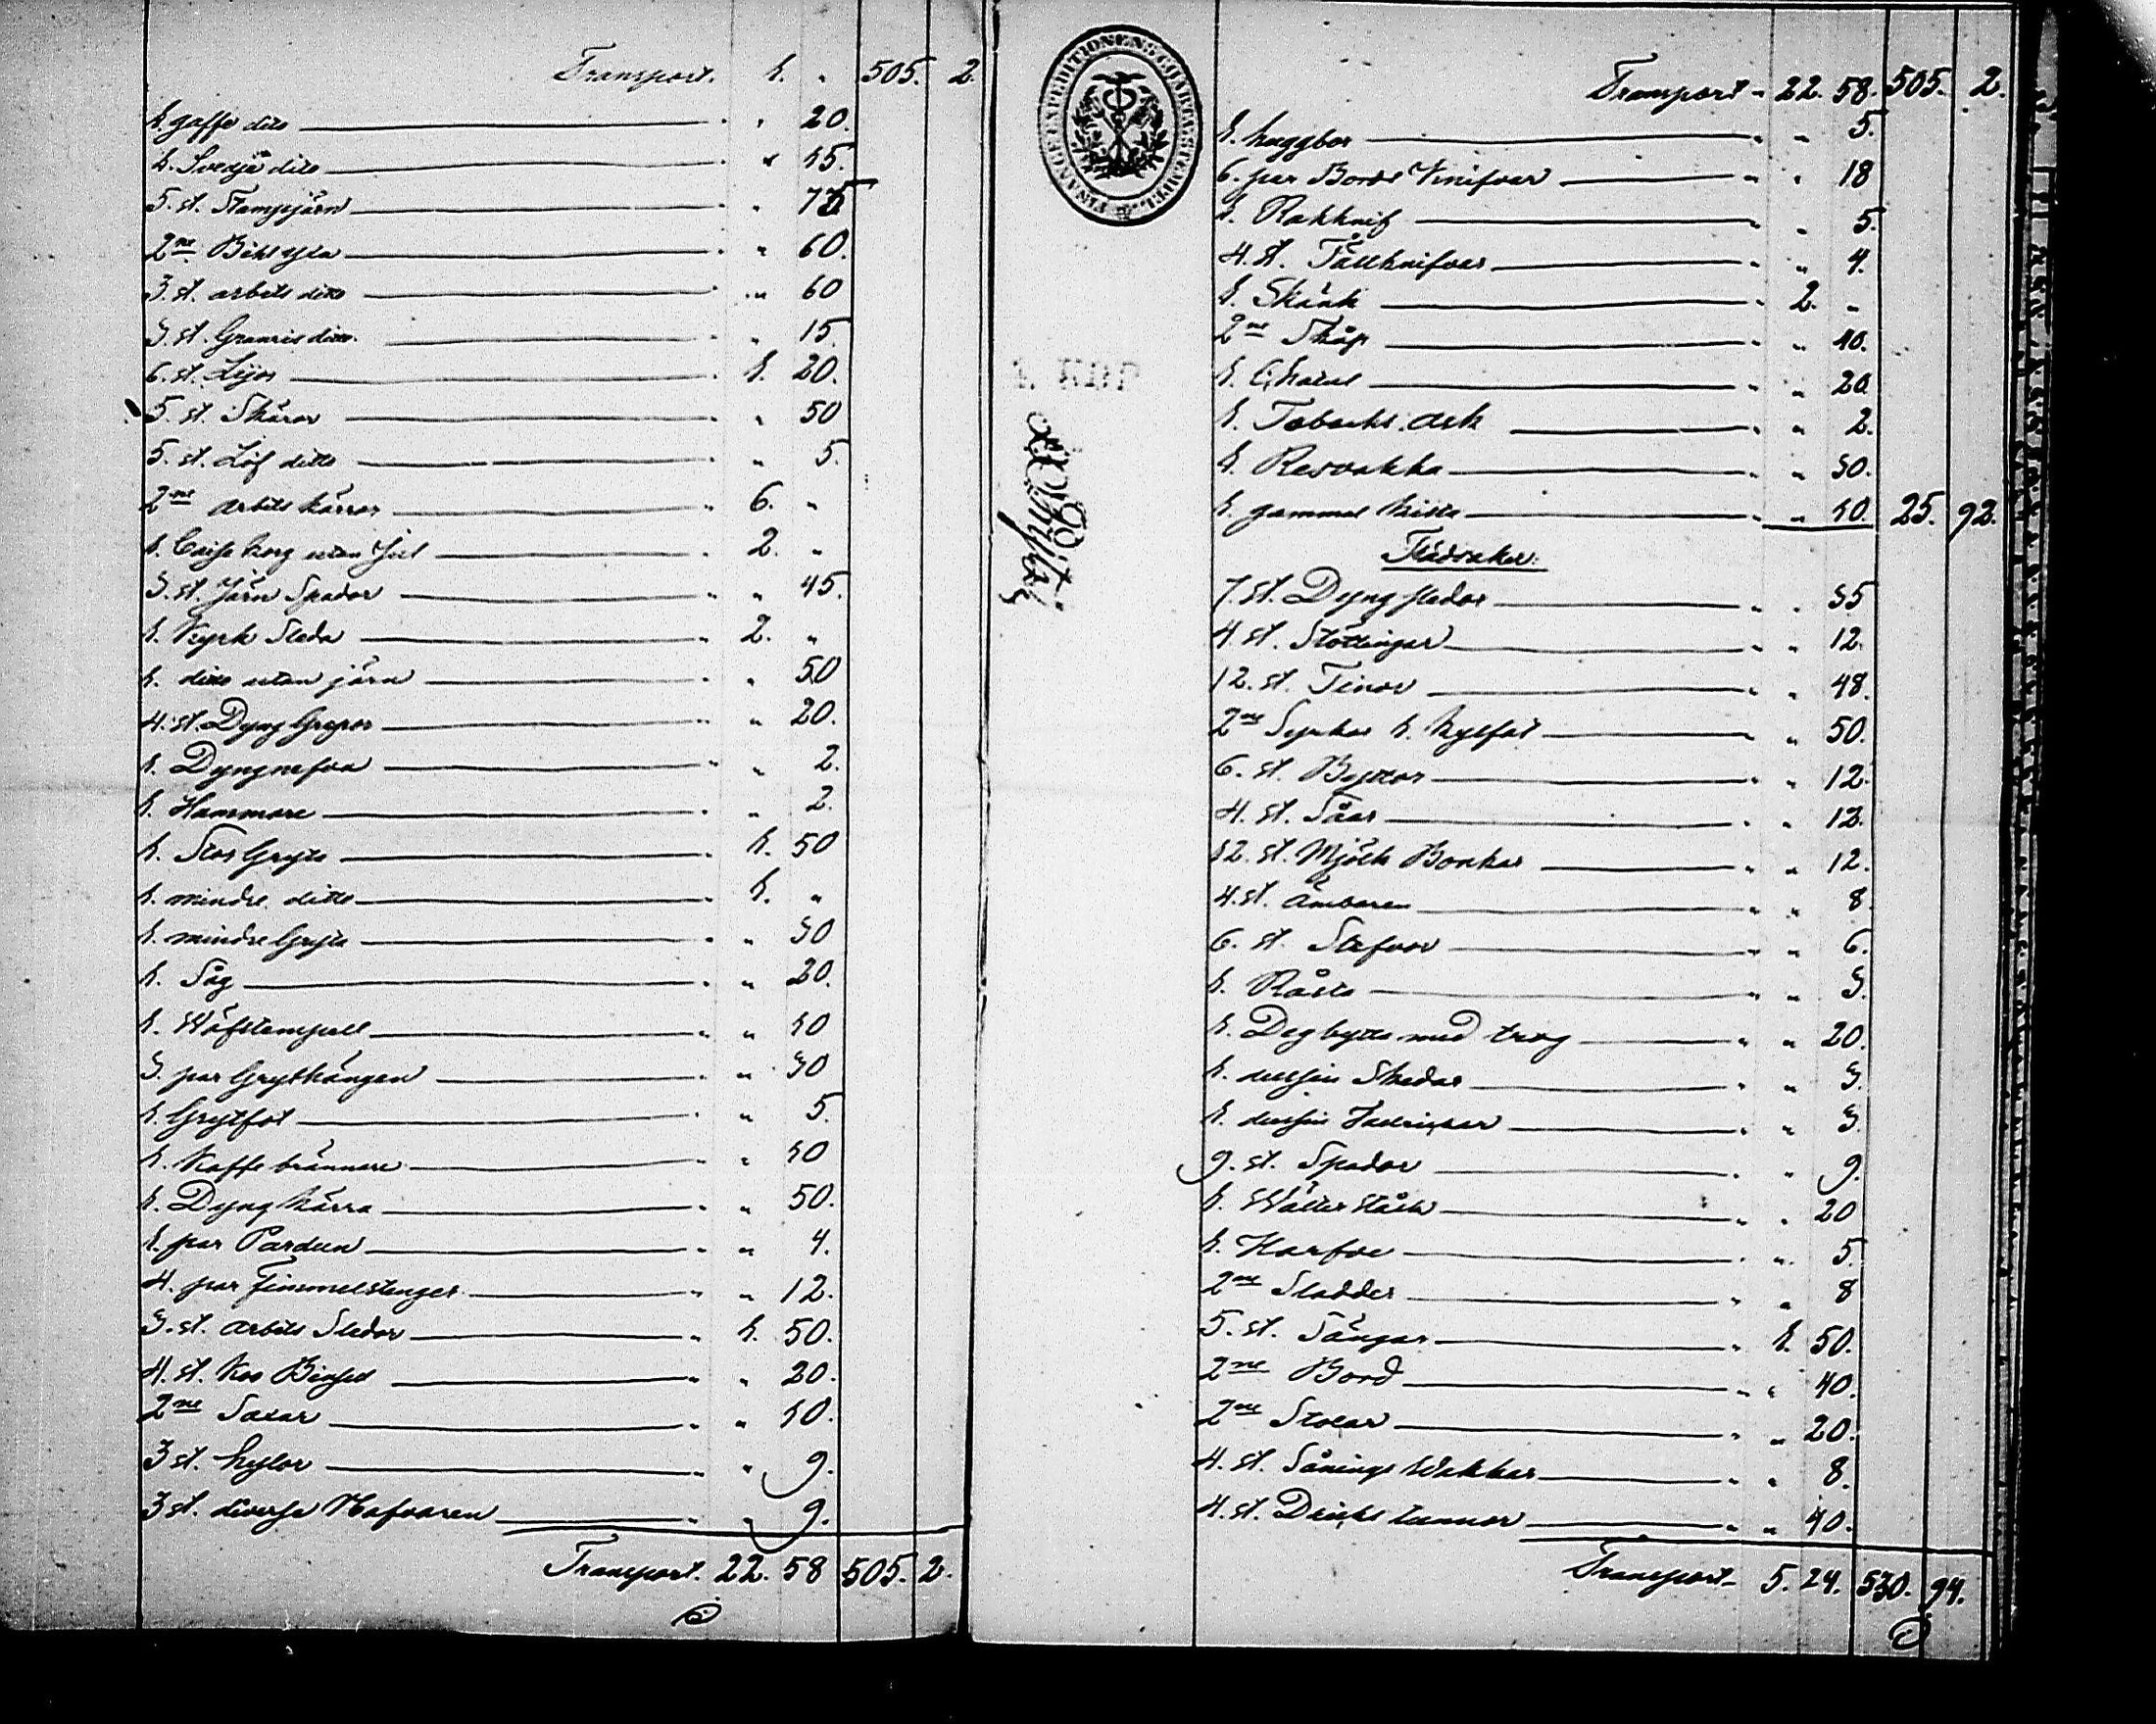 Transport. 1. " 505. 2
1. gaffe dito " 20.
1. Svedje dito " 15.
5. st. Stampjärn " 75
2ne Bihl yxa " 60.
3. st. arbets ditto " 60
3. st. Granris ditto " 15
6. st. Lijor 1. 20.
5. st. Skäror " 50
5. st. Löf ditto " 5.
2ne arbets kärror 6. "
1. korg utan hjul 2. "
3. st. Järn Spador " 45.
1. Kyrk Släda 2. "
1. ditto utan järn " 50
4. st. Dyng Grepor " 20.
1. Dyngnäfva " 2.
1. Hammare " 2.
1. Stor Gryta 1. 50
1. mindre ditto 1. "
1. mindre Gryta " 30
1. Såg " 20.
1. Häfstempell " 10
3. par Grythängen " 30
1. Grytfot " 5.
1. Kaffe brännare " 10
1. Dyng kärra " 50.
1. par Pardun " 4.
4. par Fimmelstenger " 12.
3. st. arbets Slädor 1. 50.
4. st. Koo Bindsel " 20.
2ne Saxar " 10.
3 st. hylor " 9.
3 st. diverse Nafvaren " 9.
Transport. 22. 58 505. 2.
FINANCEEXPEDITIONENS CHARTÆ STEMPEL
Transport 22. 58. 505. 2.
1. huggbor " " 5.
6. par Bords Knifvar " " 18
1. Rakknif " " 5.
4. st. Fällknifvar " " 4.
1. Skänk " 2. "
2ne Skåp " " 40.
1. Chatul " " 20
1. Tobacks ask " " 2.
1. Resvakka " " 30.
1. gammal kista " " 10. 25. 92.
Trädsaker.
7. st. Dyng slädor " " 35
4. st. Stöttingar " " 12.
12. st. Tinor " " 48.
2ne Syrkar 1. kylfat " 50.
6. st. Byttor " " 12.
4. st. Såar " " 12.
12. st. Mjölk Bonkar " " 12.
4. st. Ämbaren " " 8
6. st. Stäfvor " " 6.
1. Råsta " " 3.
1. Deg bytta med trog " " 20.
1. dussin Skedar " " 3.
1. dussin Tallrickar " " 3.
9. st. Spador " " 9.
1. Wälter ståck " " 20
1. Harfve " " 5.
2ne Sladder " " 8
5. st. Sängar 1. 50.
2ne Bord " " 40.
2ne Stolar " " 20.
4. st. Sånings Wakkar " " 8.
4. st. Dricks tunnor " " 40.
Transport 5. 24. 530. 94.